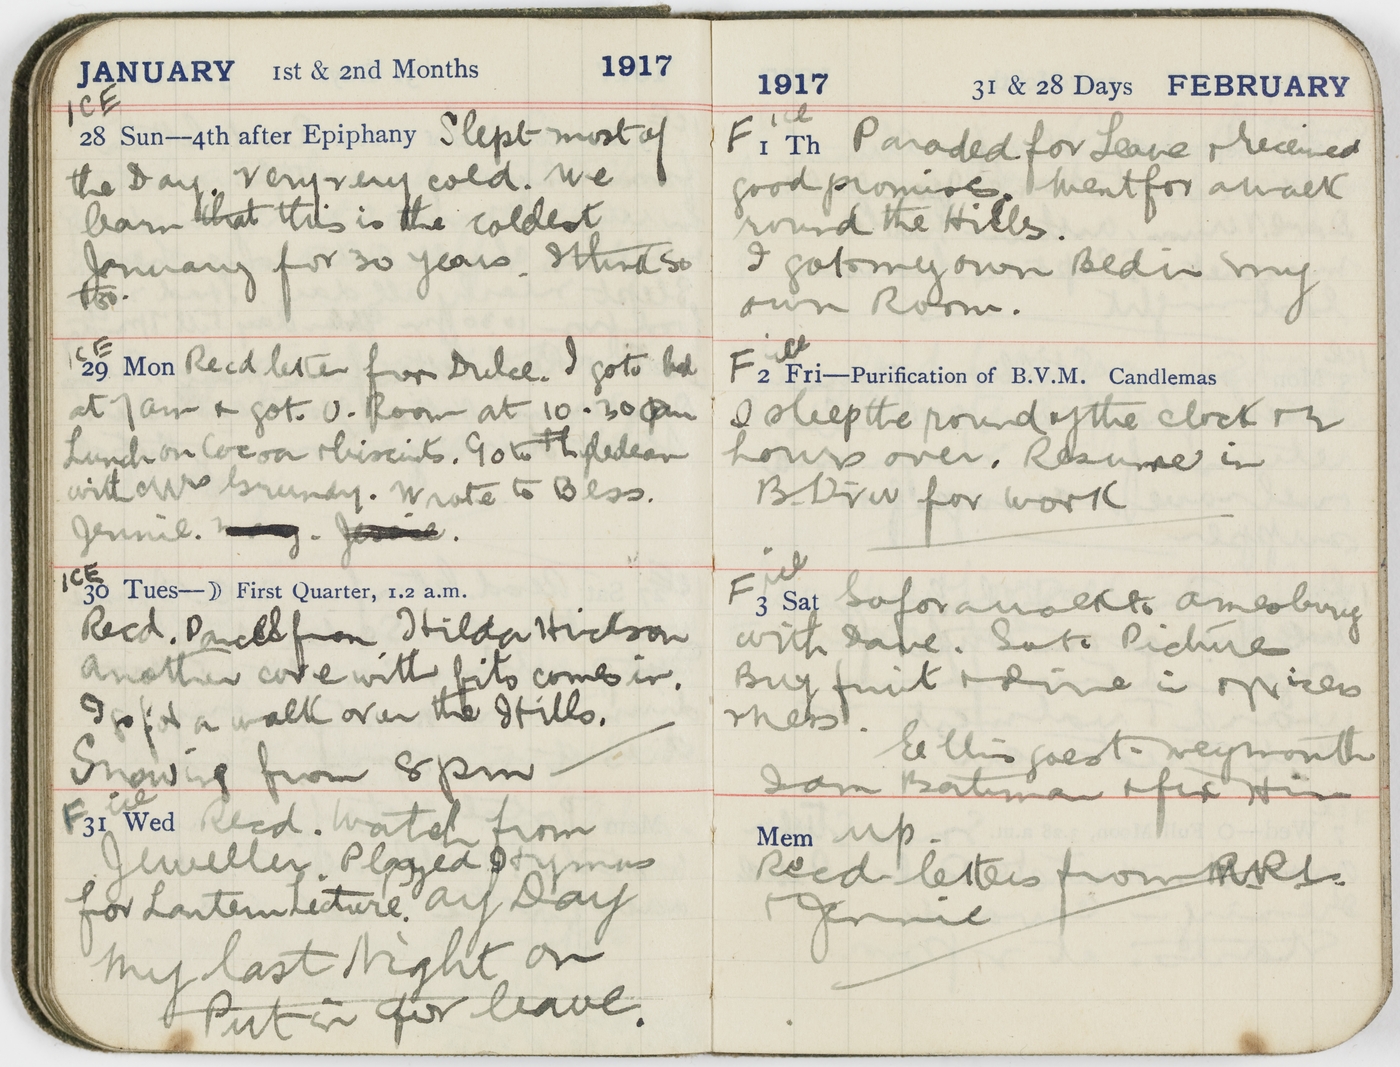 JANUARY 1st & 2nd Months 1917
ICE
28 Sun—4th after Epiphany Slept most of
the Day. Very very cold. We
learn that this is the coldest
January for 30 years. I think so
too.
ICE
29 Mon Recd letter from Dulce. I go to bed
at 7am & got. O. Room at 10.30pm
Lunch on Cocoa & biscuits. Go to
with Mrs Grundy. Wrote to Bess.
Jennie. Jessie.
ICE
30 Tues—☽ First Quarter, 1.2 a.m.
Recd. Parcell from Hilda Hickson
Another core with fits comes in.
I go for a walk over the Hills.
Snowing from 8pm
F ice
31 Wed Recd. Watch from
Jeweller. Played Hymns
for Lantern Lecture. Day
My last Night on
Put in for leave.
1917 31 & 28 Days FEBRUARY
F ice
1 Th Paraded for Leave & received
good promises. Went for a walk
round the Hills.
I got my own Bed in my
own Room.
F ice
2 Fri—Purification of B.V.M. Candlemas
I sleep the round of the clock & 2
hours over. Resume in
for work
F ice
3 Sat Go for a walk to Amesbury
with Dave. Go to Picture
Buy fruit & Dine in
mess.
Ellis goes to Weymouth
I am Batman & fix Him
Mem up.
Recd letters from
& Jennie